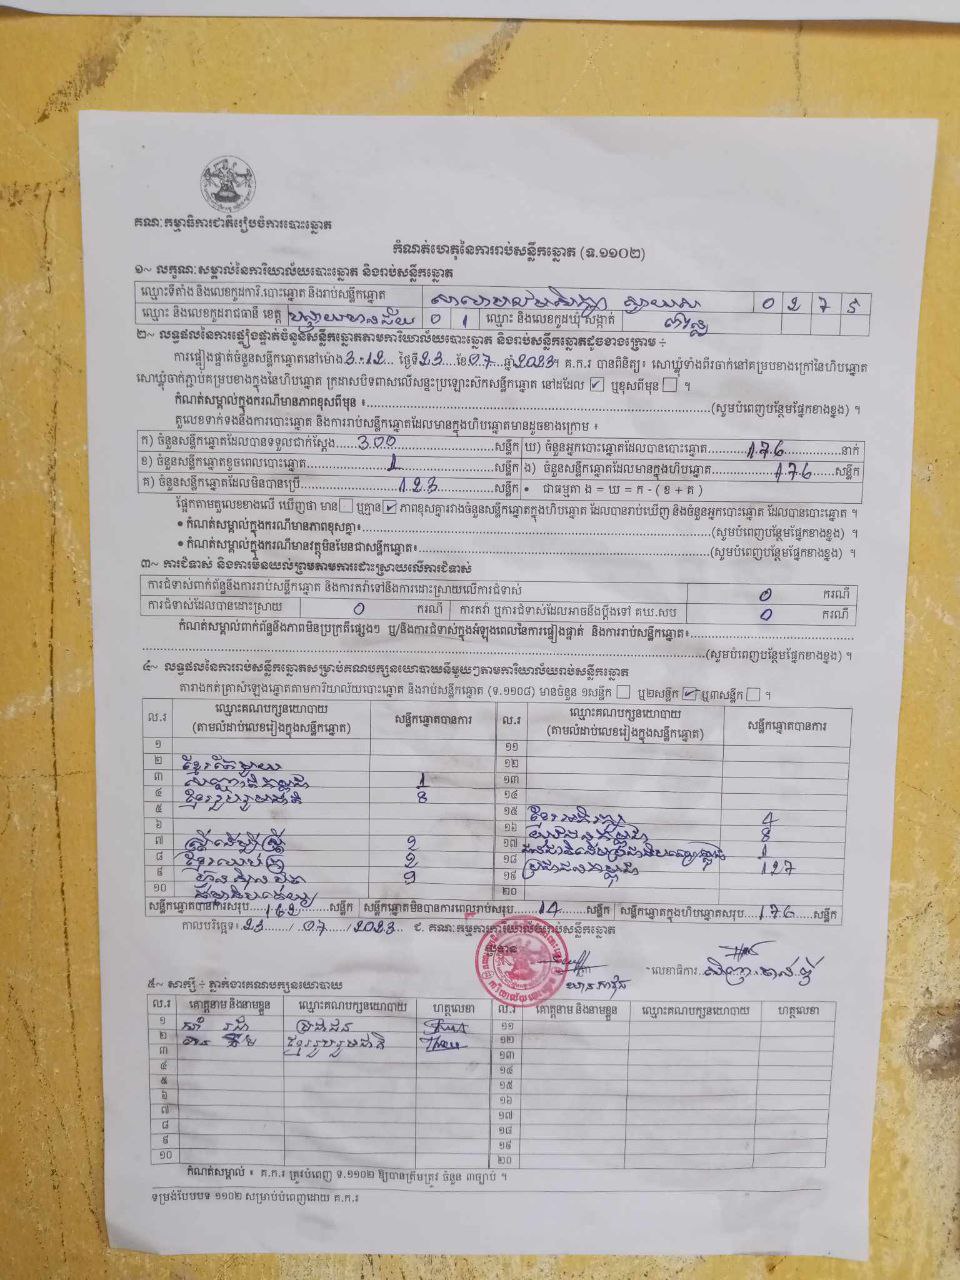 គណៈកម្មាធិការជាតិរៀបចំការបោះឆ្នោត
កំណត់ហេតុនៃការរាប់សន្លឹកឆ្នោត (ទ.១១០២)
១~ លក្ខណៈសម្គាល់នៃការិយាល័យបោះឆ្នោត និងរាប់សន្លឹកឆ្នោត
ឈ្មោះទីតាំង និងលេខកូដការិ.បោះឆ្នោត និងរាប់សន្លឹកឆ្នោត 0 2 7 5
ឈ្មោះ និងលេខកូដរាជធានី ខេត្ត បន្ទាយមានជ័យ 0 1 ឈ្មោះ និងលេខកូដឃុំ សង្កាត់
២~ លទ្ធផលនៃការផ្ទៀងផ្ទាត់ចំនួនសន្លឹកឆ្នោតតាមការិយាល័យបោះឆ្នោត និងរាប់សន្លឹកឆ្នោតដូចខាងក្រោម ÷
ការផ្ទៀងផ្ទាត់ចំនួនសន្លឹកឆ្នោតនៅម៉ោង 3:12 ថ្ងៃទី 23 ខែ 07 ឆ្នាំ 2023។ គ.ក.រ បានពិនិត្យ៖ សោឃ្លុំទាំងពីរចាក់នៅគម្របខាងក្រៅនៃហិបឆ្នោត
សោឃ្លុំចាក់ភ្ជាប់គម្របខាងក្នុងនៃហិបឆ្នោត ក្រដាសបិទពាសលើសន្ទះប្រឡោះស៊កសន្លឹកឆ្នោត នៅដដែល ☑ ឬខុសពីមុន ☐ ។
កំណត់សម្គាល់ក្នុងករណីមានភាពខុសពីមុន ៖ (សូមបំពេញបន្ថែមផ្នែកខាងខ្នង) ។
តួលេខទាក់ទងនឹងការបោះឆ្នោត និងការរាប់សន្លឹកឆ្នោតដែលមានក្នុងហិបឆ្នោតមានដូចខាងក្រោម ៖
ក) ចំនួនសន្លឹកឆ្នោតដែលបានទទួលជាក់ស្តែង 300 សន្លឹក ឃ) ចំនួនអ្នកបោះឆ្នោតដែលបានបោះឆ្នោត 176 នាក់
ខ) ចំនួនសន្លឹកឆ្នោតខូចពេលបោះឆ្នោត 1 សន្លឹក ង) ចំនួនសន្លឹកឆ្នោតដែលមានក្នុងហិបឆ្នោត 176 សន្លឹក
គ) ចំនួនសន្លឹកឆ្នោតដែលមិនបានប្រើ 123 សន្លឹក • ជាធម្មតា ង = ឃ = ក - ( ខ + គ )
ផ្អែកតាមតួលេខខាងលើ ឃើញថា មាន ☐ ឬគ្មាន ☑ ភាពខុសគ្នារវាងចំនួនសន្លឹកឆ្នោតក្នុងហិបឆ្នោត ដែលបានរាប់ឃើញ និងចំនួនអ្នកបោះឆ្នោត ដែលបានបោះឆ្នោត ។
• កំណត់សម្គាល់ក្នុងករណីមានភាពខុសគ្នា៖ (សូមបំពេញបន្ថែមផ្នែកខាងខ្នង) ។
• កំណត់សម្គាល់ក្នុងករណីមានវត្ថុមិនមែនជាសន្លឹកឆ្នោត៖ (សូមបំពេញបន្ថែមផ្នែកខាងខ្នង) ។
៣~ ការជំទាស់ និងការមិនយល់ព្រមតាមការដោះស្រាយលើការជំទាស់
ការជំទាស់ពាក់ព័ន្ធនឹងការរាប់សន្លឹកឆ្នោត និងការតវ៉ាទៅនឹងការដោះស្រាយលើការជំទាស់ 0 ករណី
ការជំទាស់ដែលបានដោះស្រាយ 0 ករណី ការតវ៉ា ឬការជំទាស់ដែលអាចនឹងប្តឹងទៅ គឃ.សប 0 ករណី
កំណត់សម្គាល់ពាក់ព័ន្ធនឹងភាពមិនប្រក្រតីផ្សេងៗ ឬ/និងការជំទាស់ក្នុងអំឡុងពេលនៃការផ្ទៀងផ្ទាត់ និងការរាប់សន្លឹកឆ្នោត៖
(សូមបំពេញបន្ថែមផ្នែកខាងខ្នង) ។
៤~ លទ្ធផលនៃការរាប់សន្លឹកឆ្នោតសម្រាប់គណបក្សនយោបាយនីមួយៗតាមការិយាល័យរាប់សន្លឹកឆ្នោត
តារាងកត់ត្រាសំឡេងឆ្នោតតាមការិយាល័យបោះឆ្នោត និងរាប់សន្លឹកឆ្នោត (ទ.១១០៨) មានចំនួន ១សន្លឹក ☐ ឬ២សន្លឹក ☑ ឬ៣សន្លឹក ☐ ។
ល.រ ឈ្មោះគណបក្សនយោបាយ (តាមលំដាប់លេខរៀងក្នុងសន្លឹកឆ្នោត) សន្លឹកឆ្នោតបានការ ល.រ ឈ្មោះគណបក្សនយោបាយ (តាមលំដាប់លេខរៀងក្នុងសន្លឹកឆ្នោត) សន្លឹកឆ្នោតបានការ
១ ១១
២ ១២
៣ 1 ១៣
៤ ខ្មែររួបរួមជាតិ 8 ១៤
៥ ១៥ 4
៦ ១៦ 8
៧ ស្ត្រីដើម្បីស្ត្រី 2 ១៧ 1
៨ 2 ១៨ ប្រជាជនកម្ពុជា 127
៩ ហ៊្វុនស៊ិនប៉ិច 9 ១៩
១០ ២០
សន្លឹកឆ្នោតបានការសរុប 162 សន្លឹក សន្លឹកឆ្នោតមិនបានការពេលរាប់សរុប 14 សន្លឹក សន្លឹកឆ្នោតក្នុងហិបឆ្នោតសរុប 176 សន្លឹក
កាលបរិច្ឆេទ៖ 23 / 07 / 2023 ជ. គណៈកម្មការការិយាល័យរាប់សន្លឹកឆ្នោត
ប្រធាន លេខាធិការ
៥~ សាក្សី ÷ ភ្នាក់ងារគណបក្សនយោបាយ
ល.រ គោត្តនាម និងនាមខ្លួន ឈ្មោះគណបក្សនយោបាយ ហត្ថលេខា ល.រ គោត្តនាម និងនាមខ្លួន ឈ្មោះគណបក្សនយោបាយ ហត្ថលេខា
១ ប្រជាជន ១១
២ ខ្មែររួបរួមជាតិ ១២
៣ ១៣
៤ ១៤
៥ ១៥
៦ ១៦
៧ ១៧
៨ ១៨
៩ ១៩
១០ ២០
កំណត់សម្គាល់ ៖ គ.ក.រ ត្រូវបំពេញ ទ.១១០២ ឱ្យបានត្រឹមត្រូវ ចំនួន ៣ច្បាប់ ។
ទម្រង់បែបបទ ១១០២ សម្រាប់បំពេញដោយ គ.ក.រ